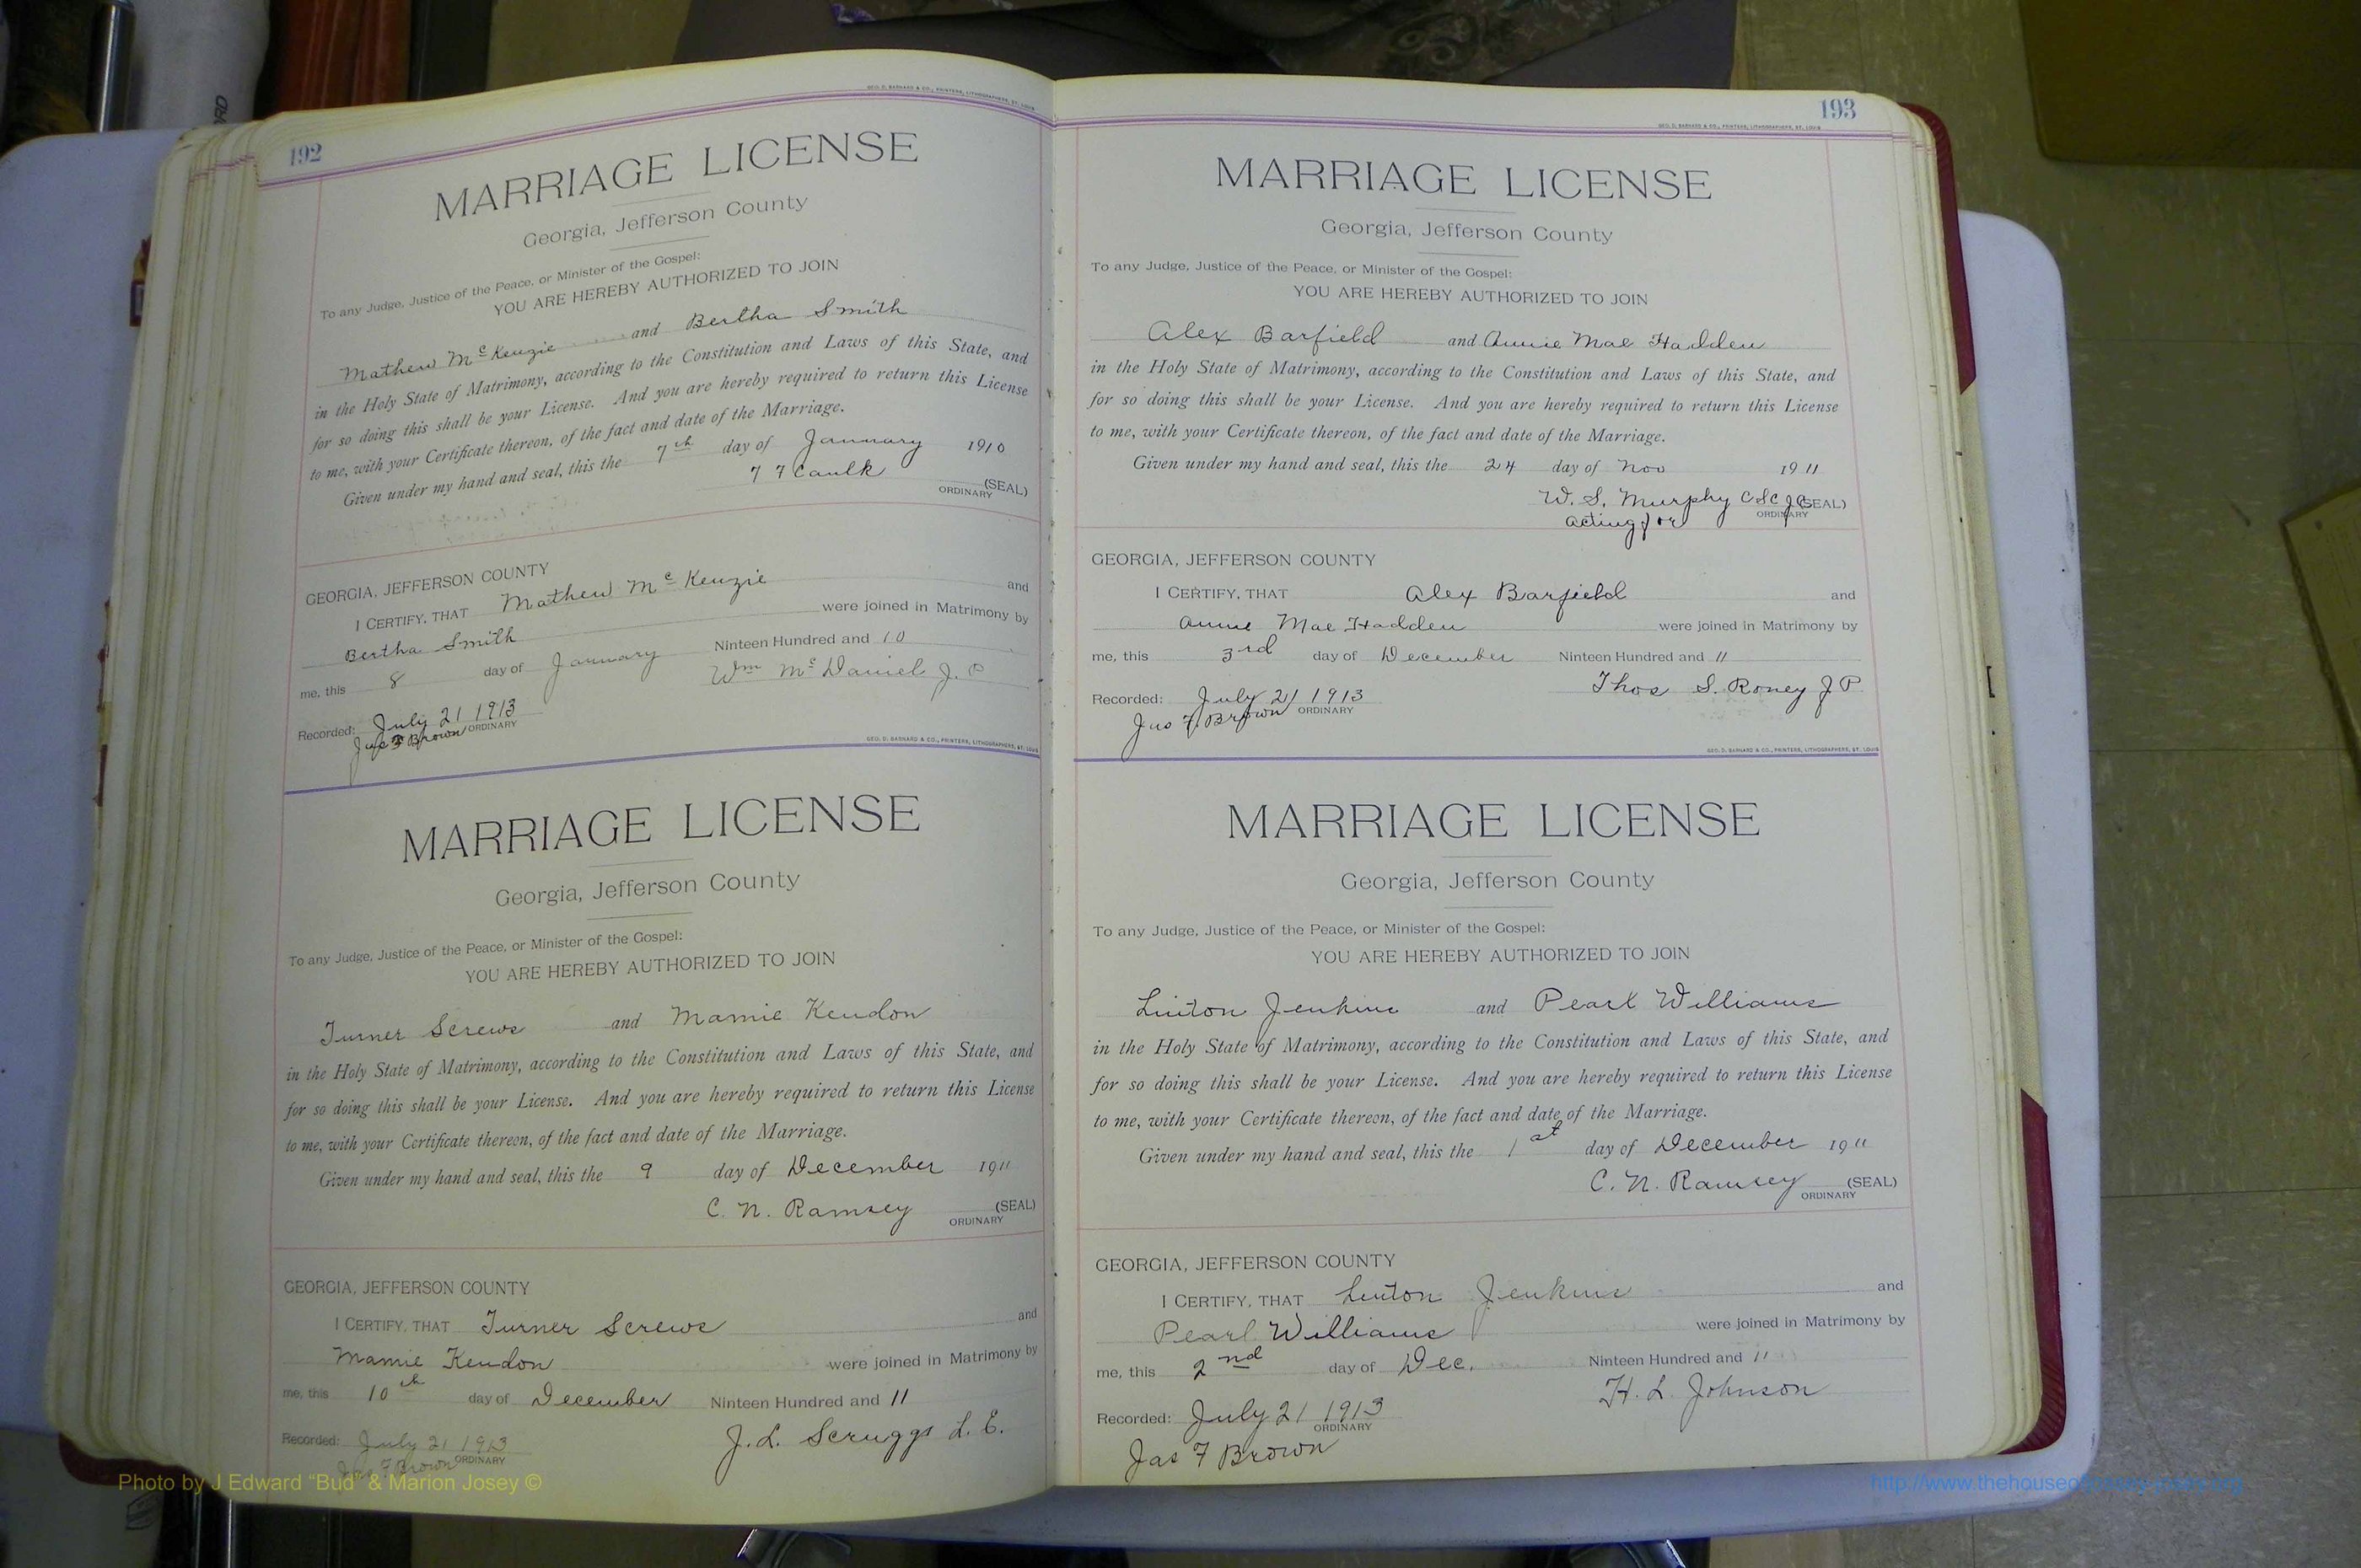 192
GEO. D. BARNARD & CO., PRINTERS, LITHOGRAPHERS, ST. LOUIS
MARRIAGE LICENSE
Georgia, Jefferson County
To any Judge, Justice of the Peace, or Minister of the Gospel:
YOU ARE HEREBY AUTHORIZED TO JOIN
Mathew McKenzie and Bertha Smith
in the Holy State of Matrimony, according to the Constitution and Laws of this State, and
for so doing this shall be your License. And you are hereby required to return this License
to me, with your Certificate thereon, of the fact and date of the Marriage.
Given under my hand and seal, this the 7th day of January 1910
7 7 Caulk (SEAL)
ORDINARY
GEORGIA, JEFFERSON COUNTY
I CERTIFY, THAT Mathew McKenzie and
Bertha Smith were joined in Matrimony by
me, this 8 day of January Ninteen Hundred and 10
Wm McDaniel J. P
Recorded: July 21 1913
Jas F Brown ORDINARY
GEO. D. BARNARD & CO., PRINTERS, LITHOGRAPHERS, ST. LOUIS
MARRIAGE LICENSE
Georgia, Jefferson County
To any Judge, Justice of the Peace, or Minister of the Gospel:
YOU ARE HEREBY AUTHORIZED TO JOIN
Turner Screws and Mamie Kendon
in the Holy State of Matrimony, according to the Constitution and Laws of this State, and
for so doing this shall be your License. And you are hereby required to return this License
to me, with your Certificate thereon, of the fact and date of the Marriage.
Given under my hand and seal, this the 9 day of December 1911
C. N. Ramsey (SEAL)
ORDINARY
GEORGIA, JEFFERSON COUNTY
I CERTIFY, THAT Turner Screws and
Mamie Kendon were joined in Matrimony by
me, this 10th day of December Ninteen Hundred and 11
J. L. Scruggs L. E.
Recorded: July 21 1913
Jas F Brown ORDINARY
193
GEO. D. BARNARD & CO., PRINTERS, LITHOGRAPHERS, ST. LOUIS
MARRIAGE LICENSE
Georgia, Jefferson County
To any Judge, Justice of the Peace, or Minister of the Gospel:
YOU ARE HEREBY AUTHORIZED TO JOIN
Alex Barfield and Annie Mae Hadden
in the Holy State of Matrimony, according to the Constitution and Laws of this State, and
for so doing this shall be your License. And you are hereby required to return this License
to me, with your Certificate thereon, of the fact and date of the Marriage.
Given under my hand and seal, this the 24 day of Nov 1911
W. S. Murphy C S C J C (SEAL)
acting for ORDINARY
GEORGIA, JEFFERSON COUNTY
I CERTIFY, THAT Alex Barfield and
Annie Mae Hadden were joined in Matrimony by
me, this 3rd day of December Ninteen Hundred and 11
Thos S. Roney J P
Recorded: July 21 1913
Jas F. Brown ORDINARY
GEO. D. BARNARD & CO., PRINTERS, LITHOGRAPHERS, ST. LOUIS
MARRIAGE LICENSE
Georgia, Jefferson County
To any Judge, Justice of the Peace, or Minister of the Gospel:
YOU ARE HEREBY AUTHORIZED TO JOIN
Linton Jenkins and Pearl Williams
in the Holy State of Matrimony, according to the Constitution and Laws of this State, and
for so doing this shall be your License. And you are hereby required to return this License
to me, with your Certificate thereon, of the fact and date of the Marriage.
Given under my hand and seal, this the 1st day of December 1911
C. N. Ramsey (SEAL)
ORDINARY
GEORGIA, JEFFERSON COUNTY
I CERTIFY, THAT Linton Jenkins and
Pearl Williams were joined in Matrimony by
me, this 2nd day of Dec. Ninteen Hundred and 11
H. L. Johnson
Recorded: July 21 1913
ORDINARY
Jas F Brown
Photo by J Edward "Bud" & Marion Josey ©